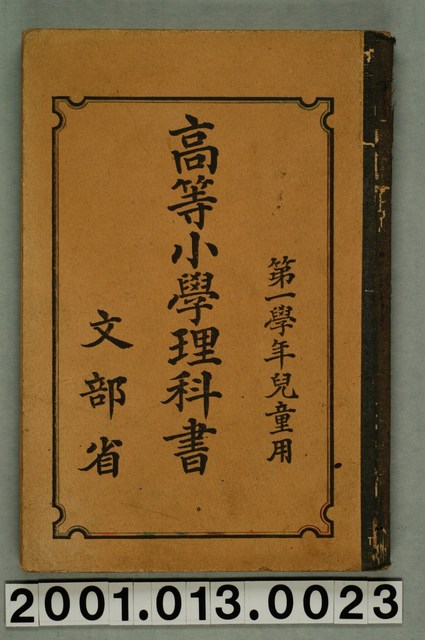 第一學年兒童用
高等小學理科書
文部省
2001.013.0023